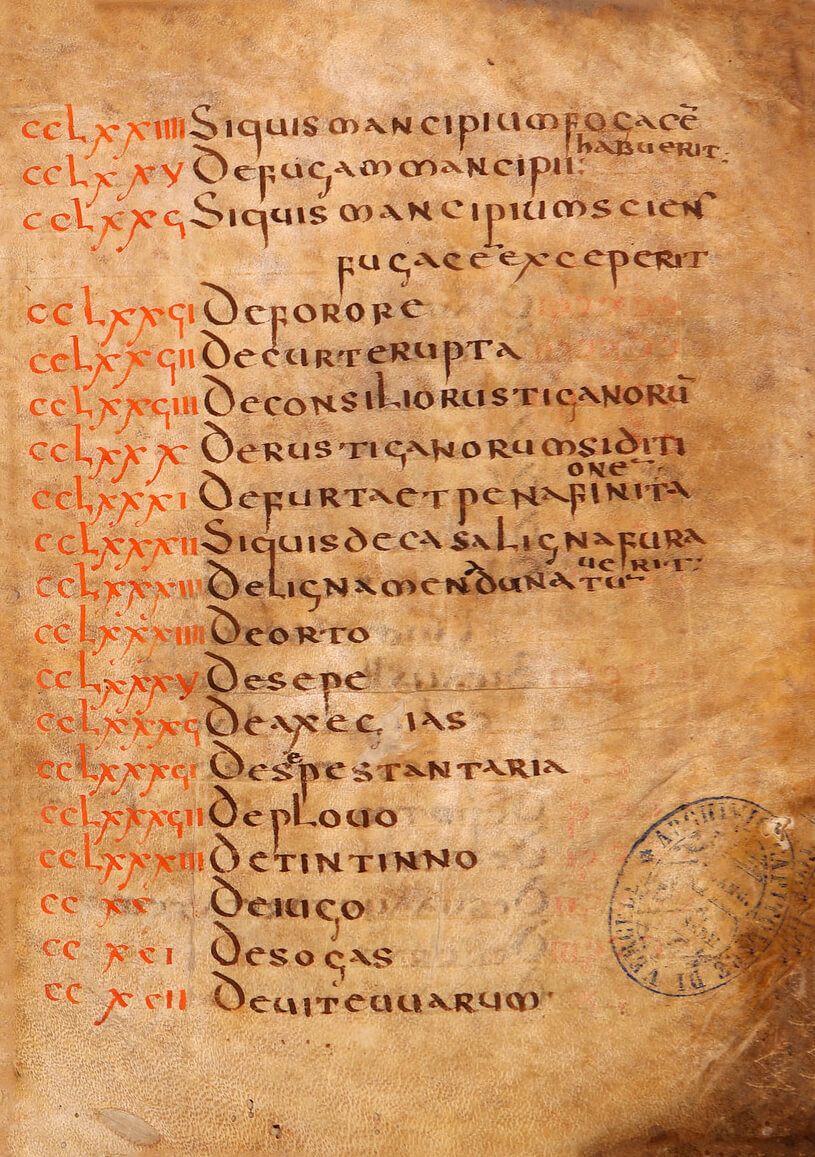 ccLxxiiii Siquis mancipium focacē
habuerit.
ccLxxv De fugam mancipii:
ccLxxϛ Siquis mancipium scien
fugacē exceperit
ccLxxϛi De forore
ccLxxϛii De curte rupta
ccLxxϛiii De consilio rusticanorū
ccLxxx De rusticanorum siditi
one
ccLxxxi De furta et pena finita
ccLxxxii Siquis de casa ligna fura
uerit:
ccLxxxiii De lignamen adunatu
ccLxxxiiii De orto
ccLxxxv De sepe
ccLxxxϛ De axegias
ccLxxxϛi De sepe stantaria
ccLxxxϛii De plouo
ccLxxxiii De tintinno
cc xx De iugo
cc xci De sogas
cc xcii De uite uuarum
ARCHIVIO CAPITOLARE DI VERCELLI